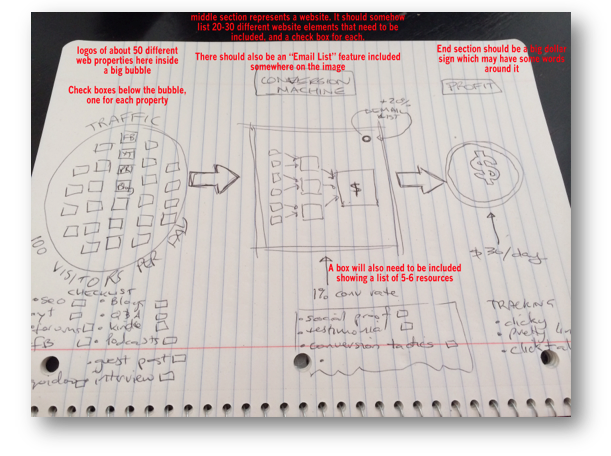 middle section represents a website. It should somehow
list 20-30 different website elements that need to be
included, and a check box for each.
logos of about 50 different
web properties here inside
a big bubble
There should also be an "Email List" feature included
somewhere on the image
End section should be a
sign which may have some words
around it
Check boxes below the bubble,
one for each property
CONVERSION
MACHINE
PROFIT
TRAFFIC
+20%
EMAIL
LIST
FB
YT
$
100 VISITORS PER DAY
$30/day
A box will also need to be included
showing a list of 5-6 resources
1% conv rate
CHECKLIST
• SEO
• Blogs
• yt
• Q&A
forums
FB
• Podcasts
• guest post
• interview
• social proof
• testimonial
• conversion tactics
TRACKING
• clicky
• pretty lin